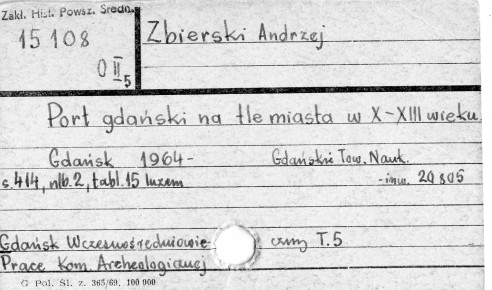 Zakł. Hist. Powsz. Średn.
15 108
O II 5
Zbierski Andrzej
Port gdański na tle miasta w X-XIII wieku.
Gdańsk 1964- Gdańskie Tow. Nauk.
s. 414, nlb. 2, tabl. 15 luzem - inw. 29 805
Gdańsk Wczesnośredniowie- czny T. 5
Prace Kom. Archeologicznej
G Pol. Śl. z. 365/69. 100 000